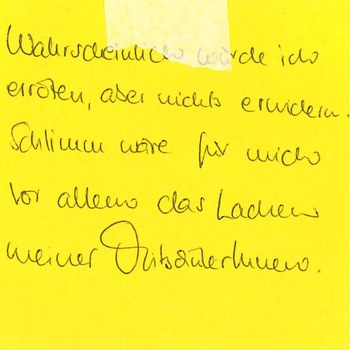 Wahrscheinlich würde ich
erröten, aber nichts erwidern.
Schlimm wäre für mich
vor allem das Lachen
meiner MitschülerInnen.